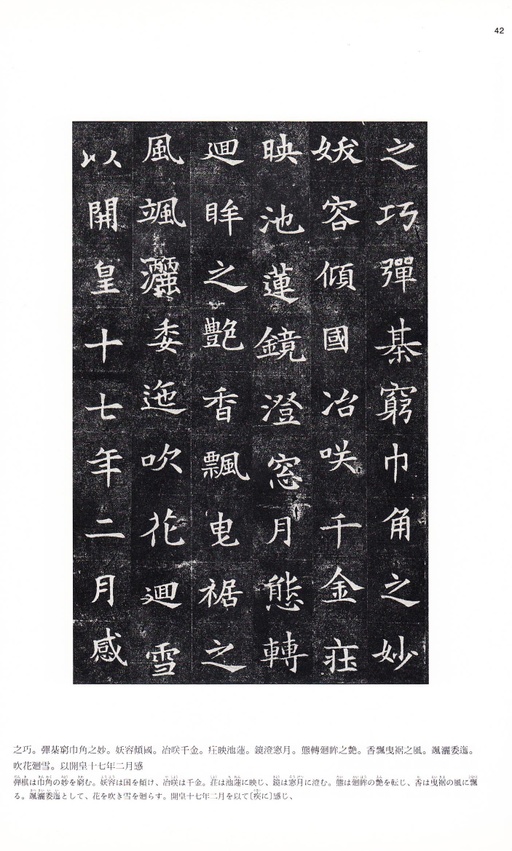 42
之巧彈棊窮巾角之妙
妖容傾國冶咲千金莊
映池蓮鏡澄窓月態轉
迴眸之艶香飄曳裾之
風颯灑委迤吹花迴雪
以開皇十七年二月感
之巧。彈棊窮巾角之妙。妖容傾國。冶咲千金。莊映池蓮。鏡澄窓月。態轉廻眸之艶。香飄曳裾之風。颯灑委迤。
吹花廻雪。以開皇十七年二月感
弾棋は巾角の妙を窮む。妖容は国を傾け、冶咲は千金。荘は池蓮に映じ、鏡は窓月に澄む。態は廻眸の艶を転じ、香は曳裾の風に飄
る。颯灑委迤として、花を吹き雪を廻らす。開皇十七年二月を以て〔疾に〕感じ、